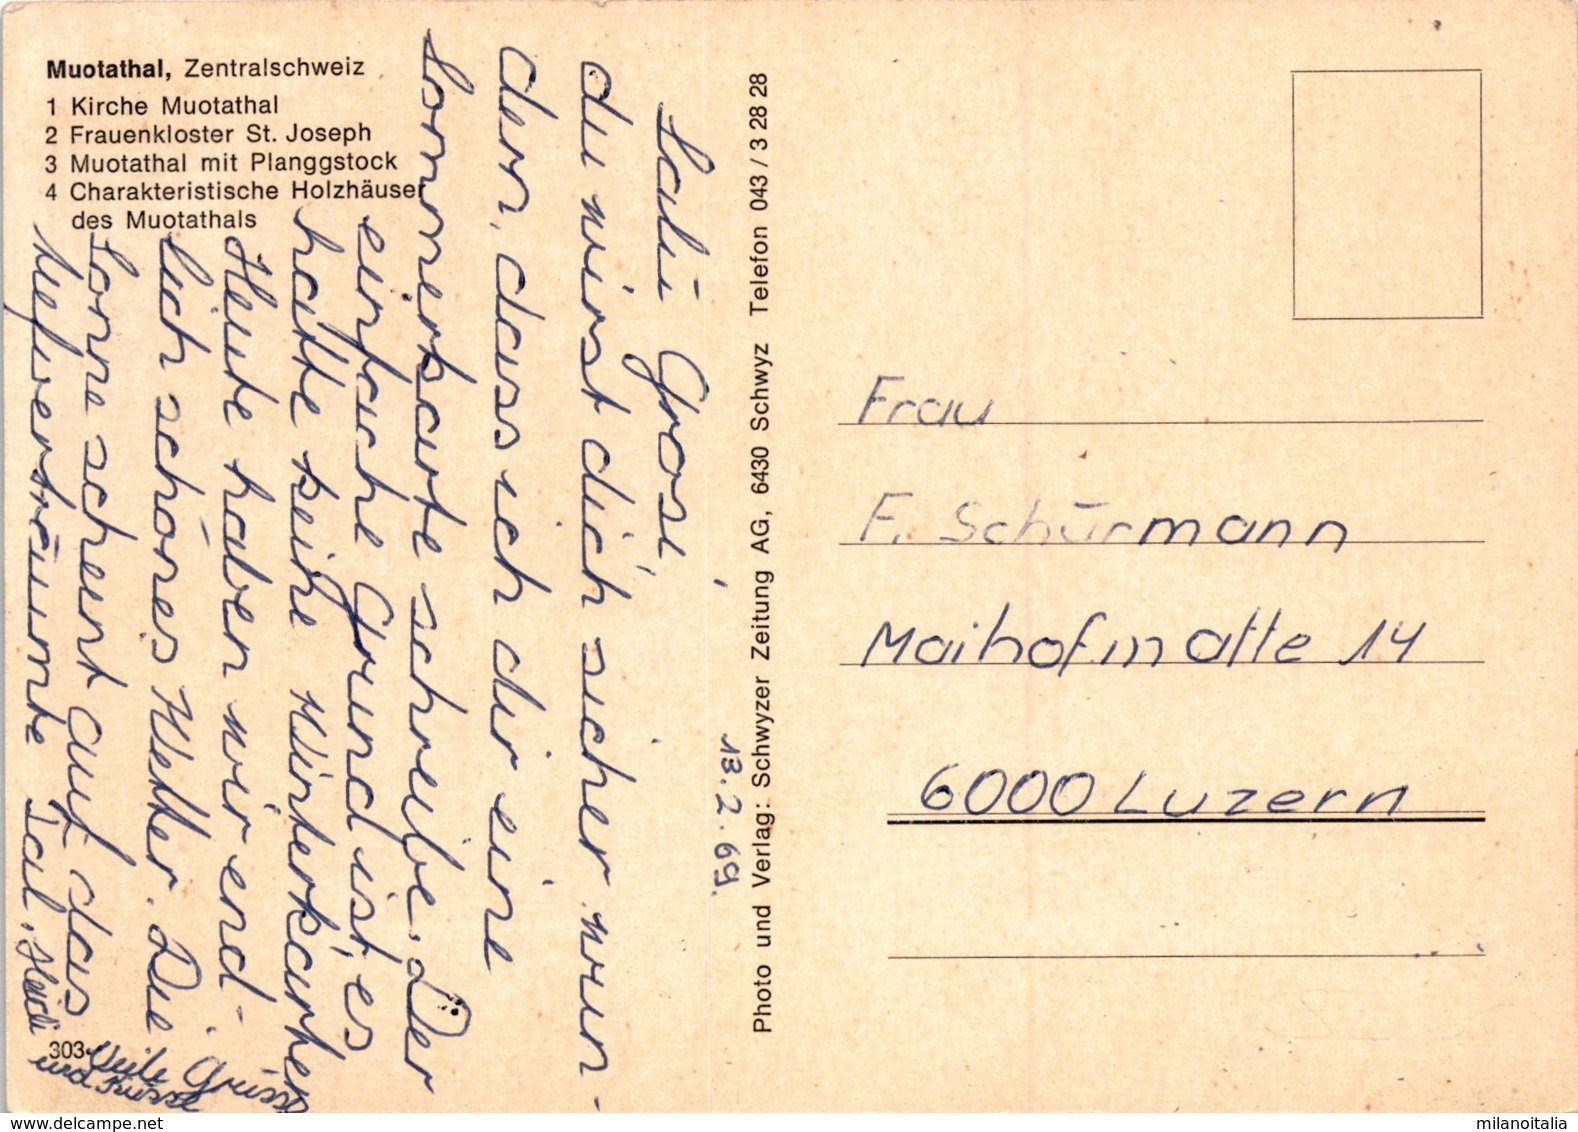 Muotathal, Zentralschweiz
1 Kirche Muotathal
2 Frauenkloster St. Joseph
3 Muotathal mit Planggstock
4 Charakteristische Holzhäuser
des Muotathals
Salü Grosi,
du wirst dich sicher wun-
dern, dass ich dir eine
Sommerkarte schreibe. Der
einfache Grund ist, es
hatte keine Winterkarten
Heute haben wir end-
lich schönes Wetter. Die
Sonne scheint auf das
tiefverträumte Tal. Heidi
Viele Grüsse
und Küsse
303
13.2.69.
Photo und Verlag: Schwyzer Zeitung AG, 6430 Schwyz Telefon 043 / 3 28 28
Frau
F. Schürmann
Maihofmatte 14
6000 Luzern
www.delcampe.net
milanoitalia